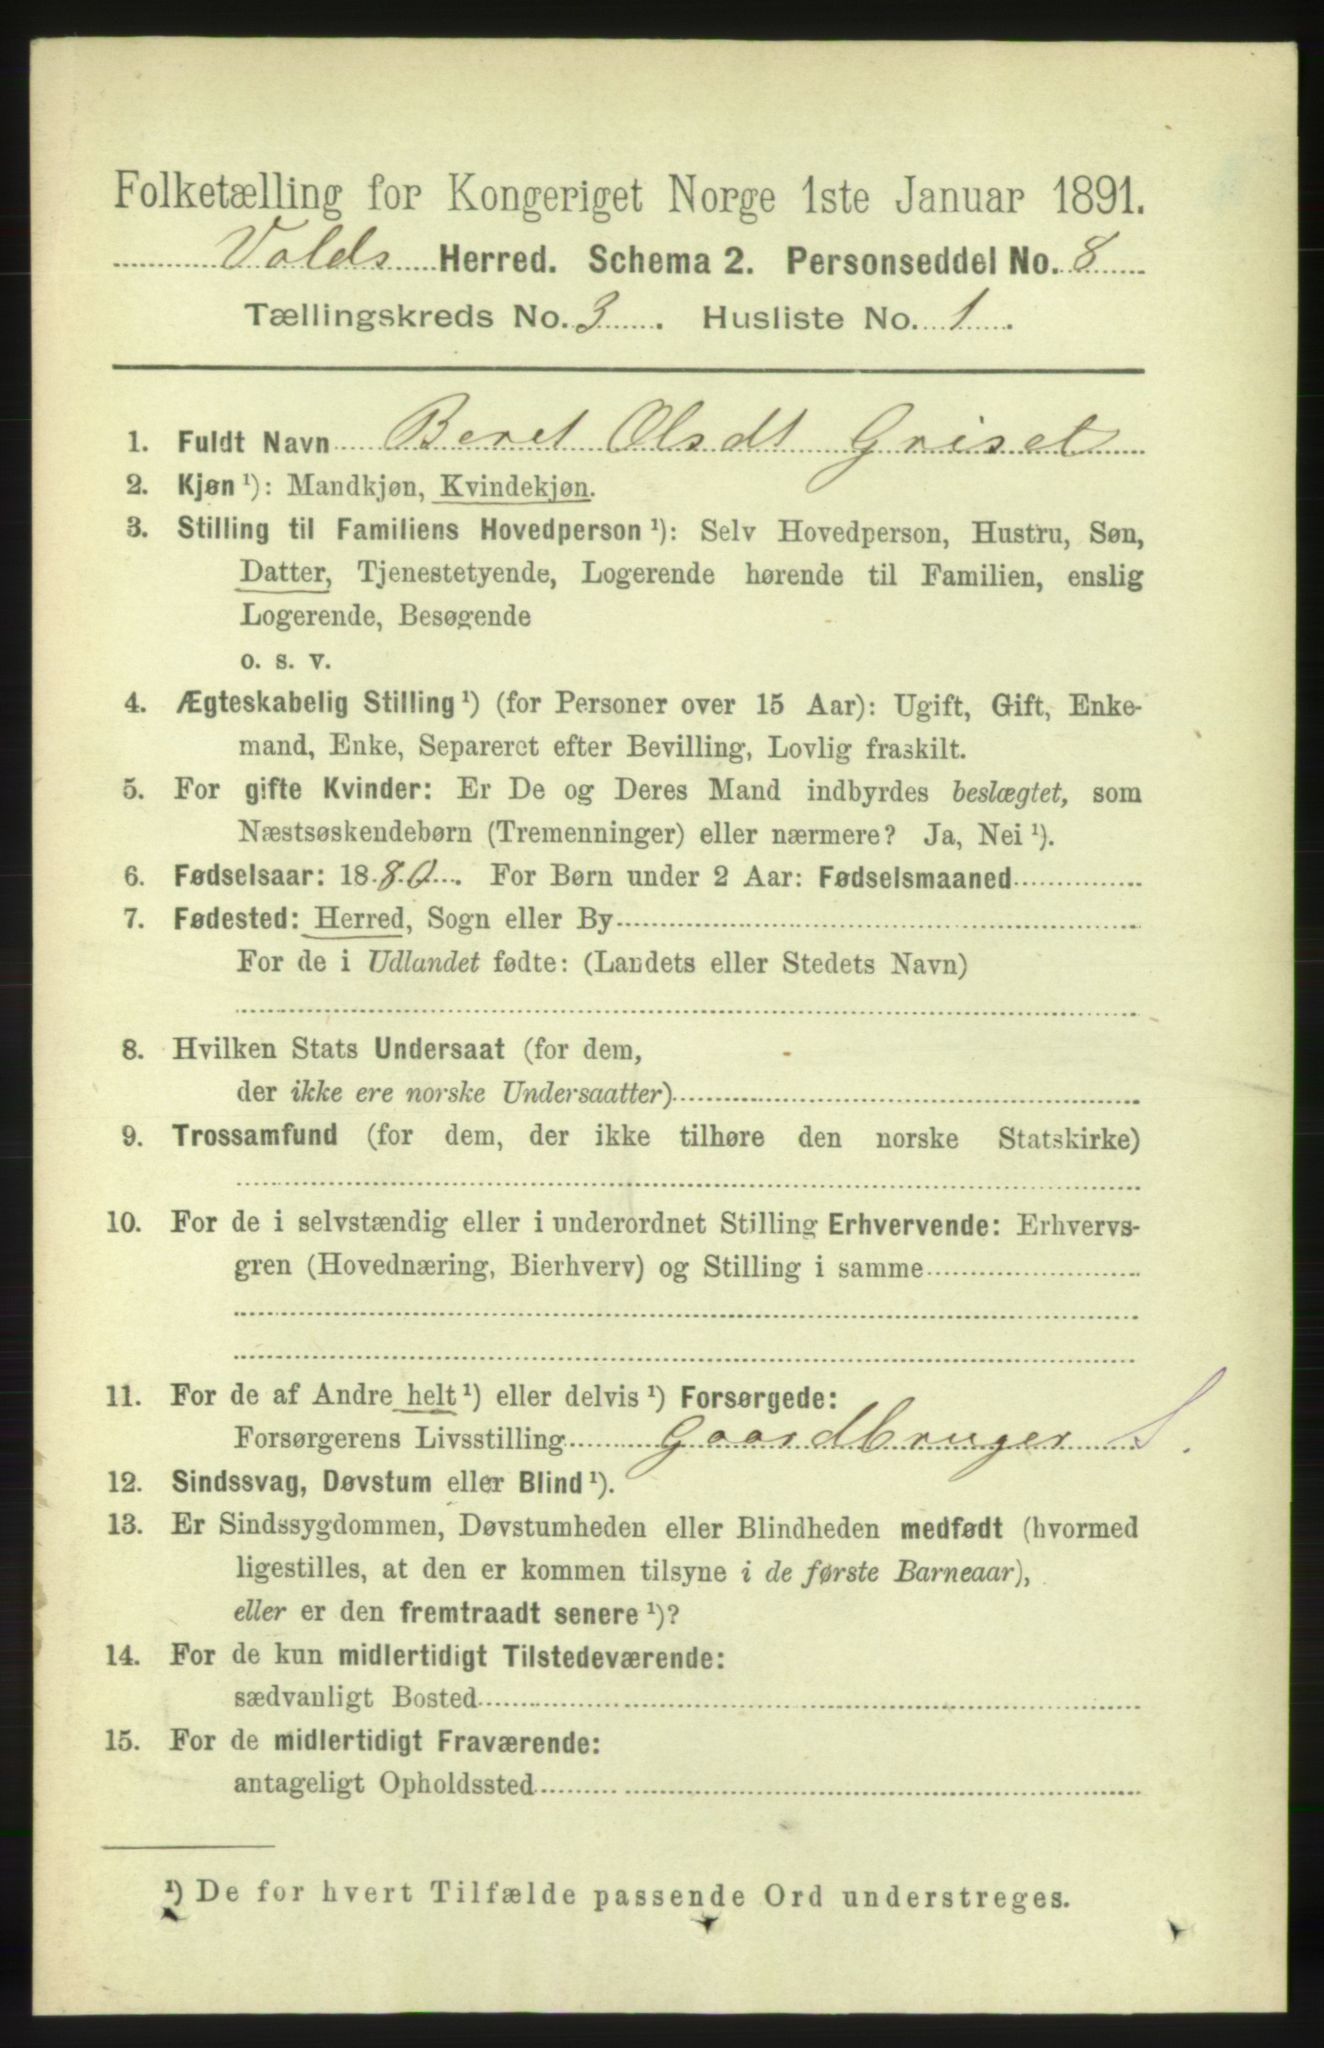 Folketælling for Kongeriget Norge 1ste Januar 1891.
Volds Herred. Schema 2. Personseddel No. 8
Tællingskreds No. 3. Husliste No. 1.
1. Fuldt Navn Beret Olsdt Griset
2. Kjøn ¹): Mandkjøn, Kvindekjøn.
3. Stilling til Familiens Hovedperson ¹): Selv Hovedperson, Hustru, Søn,
Datter, Tjenestetyende, Logerende hørende til Familien, enslig
Logerende, Besøgende
o. s. v.
4. Ægteskabelig Stilling ¹) (for Personer over 15 Aar): Ugift, Gift, Enke-
mand, Enke, Separeret efter Bevilling, Lovlig fraskilt.
5. For gifte Kvinder: Er De og Deres Mand indbyrdes beslægtet, som
Næstsøskendebørn (Tremenninger) eller nærmere? Ja, Nei ¹).
6. Fødselsaar: 1880. For Børn under 2 Aar: Fødselsmaaned
7. Fødested: Herred, Sogn eller By
For de i Udlandet fødte: (Landets eller Stedets Navn)
8. Hvilken Stats Undersaat (for dem,
der ikke ere norske Undersaatter)
9. Trossamfund (for dem, der ikke tilhøre den norske Statskirke)
10. For de i selvstændig eller i underordnet Stilling Erhvervende: Erhvervs-
gren (Hovednæring, Bierhverv) og Stilling i samme
11. For de af Andre helt ¹) eller delvis ¹) Forsørgede:
Forsørgerens Livsstilling Gaardbruger S.
12. Sindssvag, Døvstum eller Blind ¹).
13. Er Sindssygdommen, Døvstumheden eller Blindheden medfødt (hvormed
ligestilles, at den er kommen tilsyne i de første Barneaar),
eller er den fremtraadt senere ¹)?
14. For de kun midlertidigt Tilstedeværende:
sædvanligt Bosted
15. For de midlertidigt Fraværende:
antageligt Opholdssted
¹) De for hvert Tilfælde passende Ord understreges.